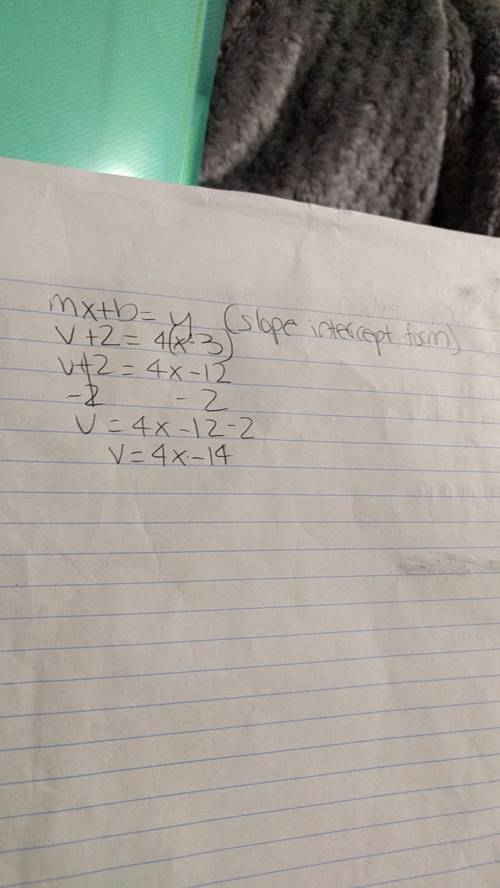 mx+b=y (slope intercept form)
v+2=4(x-3)
v+2=4x-12
-2 -2
v=4x-12-2
v=4x-14